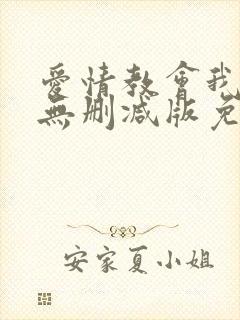 愛情教會我
無刪减版免
安家夏小姐